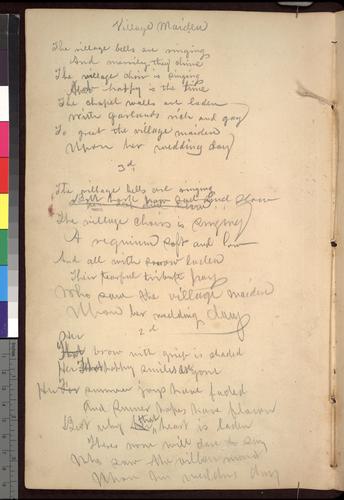 Village Maiden
The village bells are ringing
And merrily they chime
The village choir is singing
How happy is the time
The chapel walls are laden
With garlands rich and gay
To greet the village maiden
Upon her wedding day
3d
The village bells are ringing
But
The village choir is singing
A requiem soft and low
And all with sorrow laden
Their tearful tribute pay
Who saw the village maiden
Upon her wedding day
2d
Her
brow with grief is shaded
Her happy smiles gone
Her summer joys have faded
And summer hopes have flown
But why that heart is laden
Theres none will dare to say
Who saw the village maid
Upon her wedding day